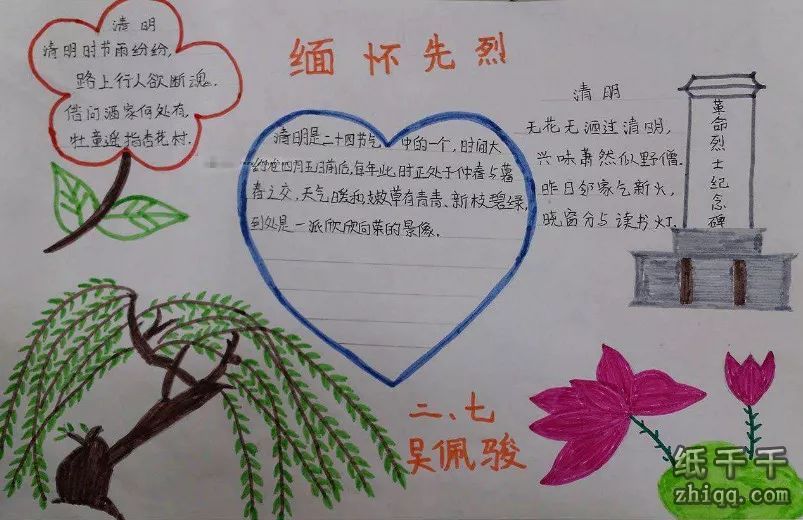 缅怀先烈
清明
清明时节雨纷纷,
路上行人欲断魂.
借问酒家何处有,
牡童遥指杏花村.
清明是二十四节气 中的一个,时间大
约在四月五日前后,每年此时正处于仲春与暮
春之交,天气暖和嫩草有青青、新枝碧绿,
到处是一派欣欣向荣的景像.
清明
无花无酒过清明,
兴味萧然似野僧.
昨日邻家乞新火,
晓窗分与读书灯.
革命烈士纪念碑
二、七
吴佩骏
纸千千
zhiqq.com